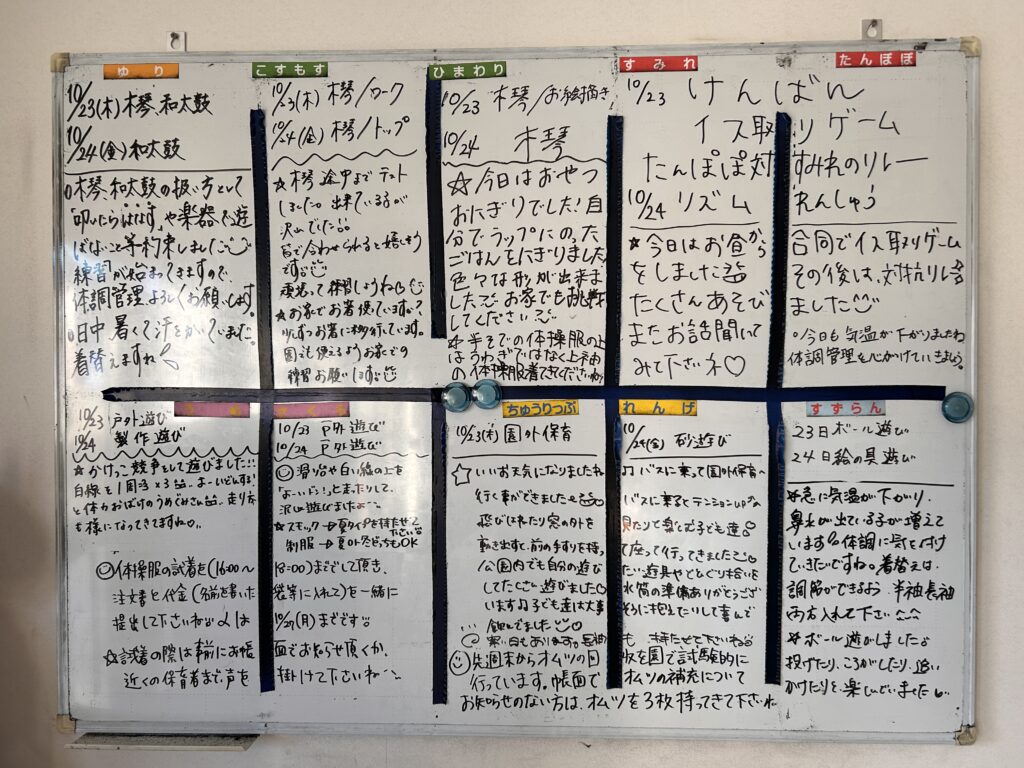 ゆり
10/23(木)木琴、和太鼓
10/24(金)和太鼓
○木琴、和太鼓の扱い方として
"叩いたらはなす"や楽器で遊
ばないこと等約束しました
練習が始まってきますので、
体調管理よろしくお願いします。
○日中暑くて汗をかいています。
着替えますね
こすもす
10/23(木)木琴/ワーク
10/24(金)木琴/トップ
☆木琴途中までテスト
しました。出来ている子が
沢山でした
皆で合わせられると嬉しそう
です
頑張って練習しようね
☆お家でお箸使っていますか?
少しずつお箸に移行しています。
園でも使えるようお家での
練習お願いします
ひまわり
10/23 木琴/お絵描き
10/24 木琴
☆今日はおやつ
おにぎりでした!自
分でラップにのった
ごはんをにぎりました
色々な形が出来ま
した お家でも挑戦
してください
☆半そでの体操服の上
はうわぎではなく上袖
の体操服着させてくださいね
すみれ
たんぽぽ
10/23 けんばん
イス取りゲーム
たんぽぽ対すみれのリレー
れんしゅう
10/24 リズム
☆今日はお昼から
をしました
たくさんあそび
またお話聞いて
みて下さいネ♡
合同でイス取りゲーム
その後は、対抗リレーを
ました
○今日も気温が下がりましたね
体調管理を心がけていきましょう
10/23 戸外遊び
10/24 製作遊び
☆かけっこ競争をして遊びました!!
白線を1周
走り方
も様になってきてますね
10/23 戸外遊び
10/24 戸外遊び
白い線の上を
"よーいドン!"と走ったりして、
沢山遊びましたよ
☆スモック→夏タイプを持たせて
下さい
制服→夏or冬どっちもOK
体操服の試着を(16:00〜
18:00)までとして頂き、
注文書と代金(名前を書いた
袋等に入れて)を一緒に
提出して下さいね
10/27(月)までです
☆試着の際は事前にお帳
面でお知らせ頂くか、
近くの保育者まで声を
掛けて下さいね
ちゅうりっぷ
れんげ
10/23(木)園外保育
10/24(金)砂遊び
☆いいお天気になりましたね
♪バスに乗って園外保育へ
行く事ができました
バスに乗るとテンションup
飛びはねたり窓の外を
見たりと楽しむ子ども達
動き出すと、前の手すりを持っ
て座って行ってきました
公園内でも自分の遊び
たい遊具やどんぐり拾いを
してたくさん遊びました
水筒の準備ありがとうござ
います 子ども達は大事
そうに抱えたりして喜んで
飲んでました
寒い日もあります。長袖
も持たせて下さいね
先週末からオムツの回
収を園で試験的に
行っています。帳面で
オムツの補充について
お知らせのない方は、オムツを3枚持ってきて下さいね
すずらん
23日ボール遊び
24日絵の具遊び
☆急に気温が下がり、
鼻水が出ている子が増えて
います 体調に気を付け
ていきたいですね。着替えは、
調節ができるよう半袖長袖
両方入れて下さい
☆ボール遊びしました
投げたり、ころがしたり、追い
かけたりを楽しんでいました